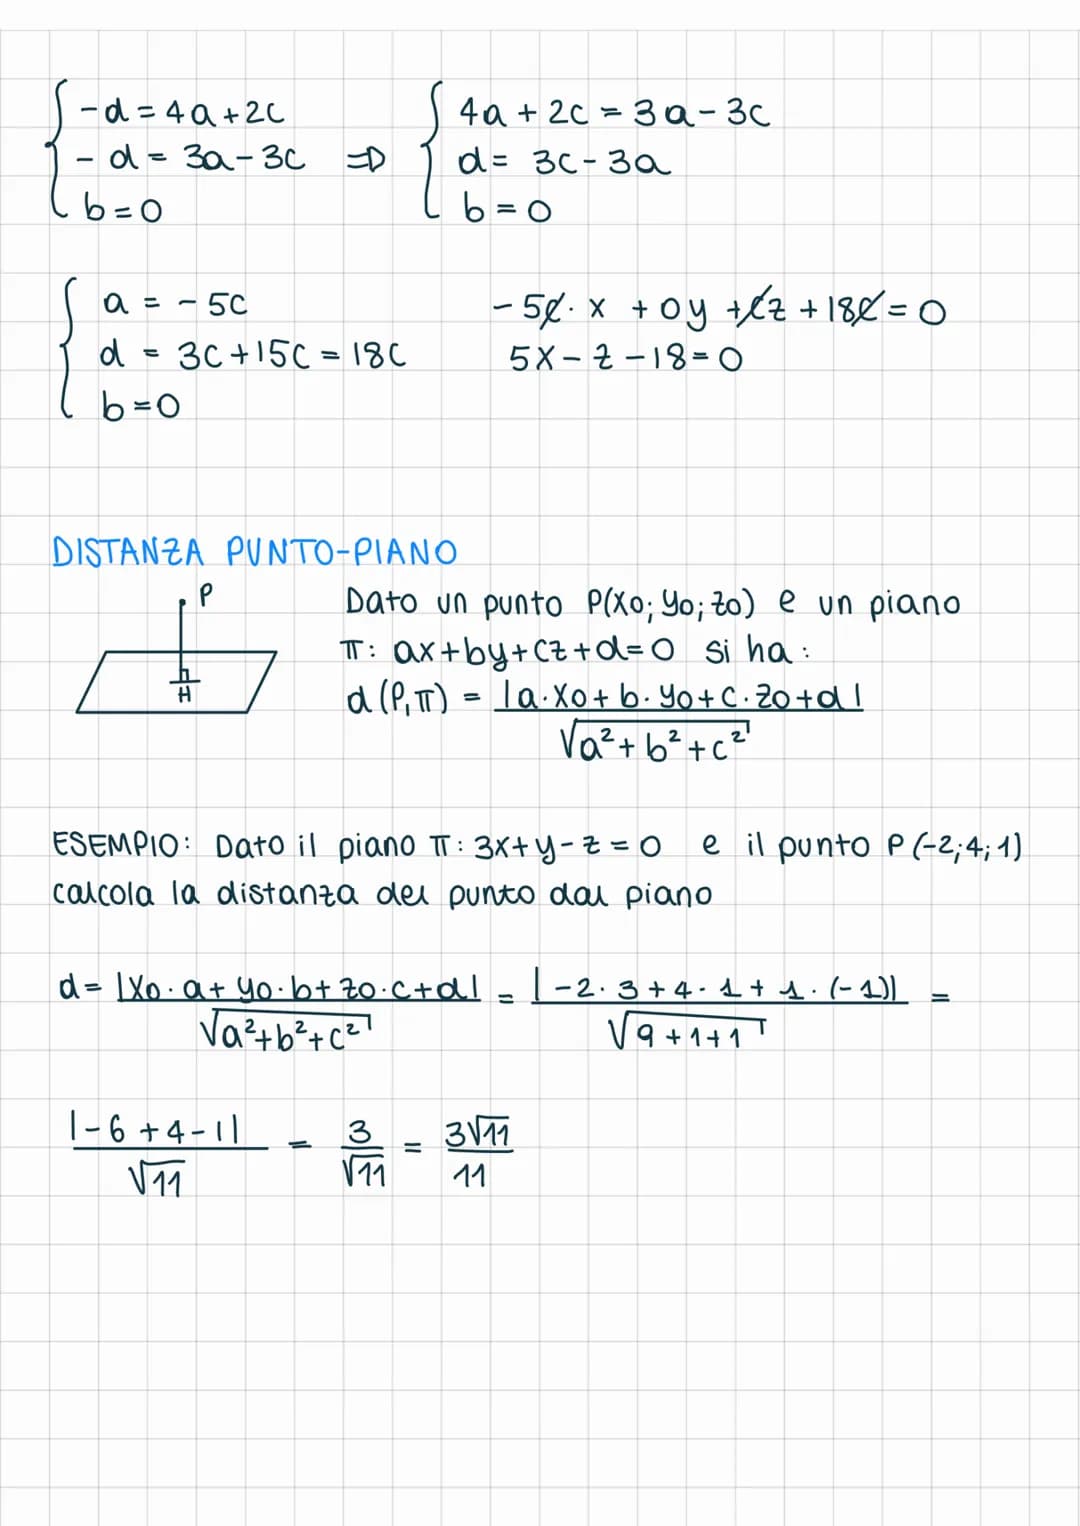 -d = 4a + 2c
- d = 3a - 3c ⇒
b = 0
4a + 2c = 3a - 3c
d = 3c - 3a
b = 0
a = - 5c
d = 3c + 15c = 18c
b = 0
- 5c · x + 0y + cz + 18c = 0
5x - z - 18 = 0
DISTANZA PUNTO-PIANO
P
H
Dato un punto P(x0; y0; z0) e un piano
π: ax + by + cz + d = 0 si ha :
d (P, π) = |a·x0 + b·y0 + c·z0 + d| / √a² + b² + c²
ESEMPIO: Dato il piano π : 3x + y - z = 0 e il punto P (-2; 4; 1)
calcola la distanza del punto dal piano
d = |x0 · a + y0 · b + z0 · c + d| / √a² + b² + c² = |-2 · 3 + 4 · 1 + 1 · (-1)| / √9 + 1 + 1 =
|-6 + 4 - 1| / √11 = 3 / √11 = 3√11 / 11